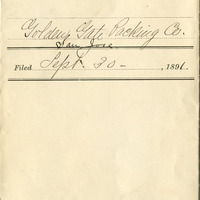 Golden Gate Packing Co.
San Jose
Filed Sept. 30 - , 1891.